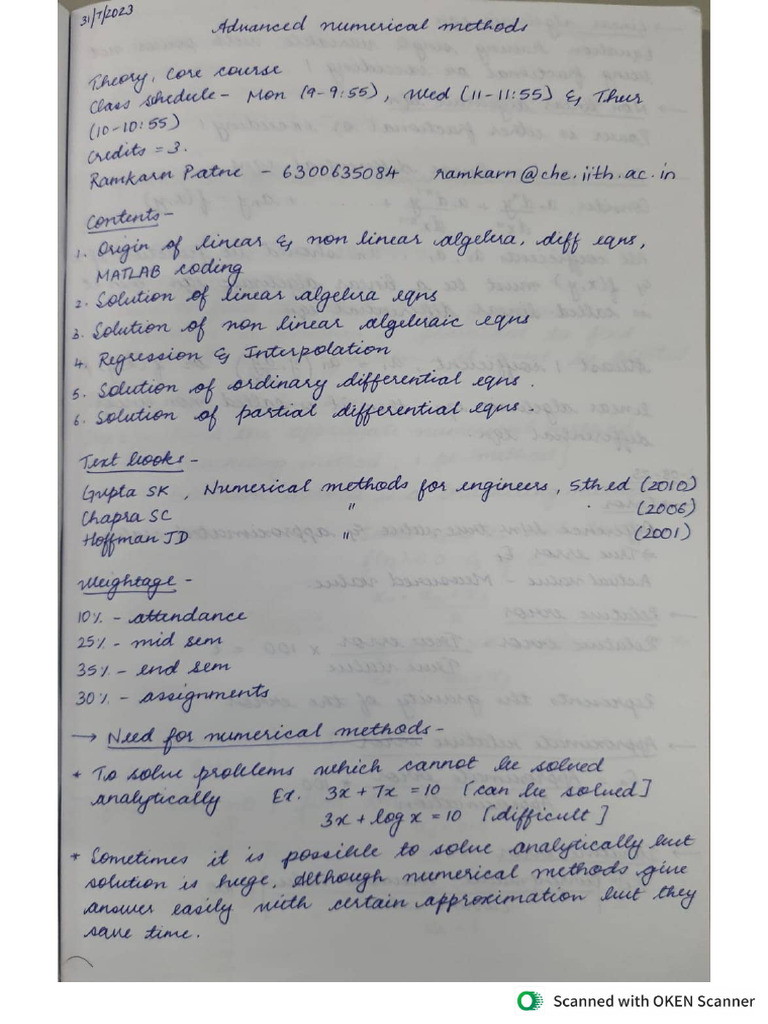 31/7/2023
Advanced numerical methods
Theory, Core course
Class schedule - Mon (9-9:55), Wed (11-11:55) & Thur
(10-10:55)
Credits = 3.
Ramkarn Patne - 6300635084 ramkarn@che.iith.ac.in
Contents -
1. Origin of linear & non linear algebra, diff eqns,
MATLAB coding
2. Solution of linear algebra eqns
3. Solution of non linear algebraic eqns
4. Regression & Interpolation
5. Solution of ordinary differential eqns.
6. Solution of partial differential eqns.
Text books -
Gupta SK, Numerical methods for engineers, 5th ed (2010)
Chapra SC " (2006)
Hoffman JD " (2001)
Weightage -
10% - attendance
25% - mid sem
35% - end sem
30% - assignments
→ Need for numerical methods -
* To solve problems which cannot be solved
analytically Ex. 3x + 7x = 10 [can be solved]
3x + log x = 10 [difficult]
* Sometimes it is possible to solve analytically but
solution is huge. Although numerical methods give
answer easily with certain approximation but they
save time.
Scanned with OKEN Scanner